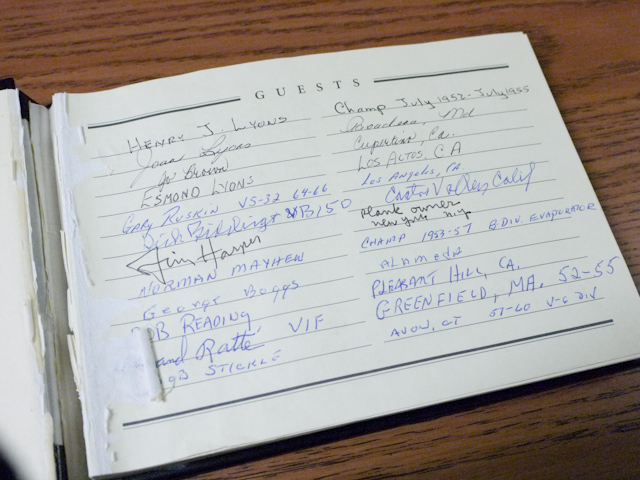 GUESTS
HENRY J. LYONS Champ July 1952 - July 1955
Joan Lyons
Jo Brown Cupertino, Ca.
ESMOND LYONS LOS ALTOS, CA
GARY RUSKIN VS-32 64-66 Los Angeles, CA.
Dick Biddinger VB150 Castro Valley Calif
Jim Harper plank owner
new york n.y.
NORMAN MAYHEW CHAMP 1953-57 B.DIV. EVAPORATOR
George Boggs ALAMEDA
BOB READING PLEASANT HILL, CA.
Ratte, VIF GREENFIELD, MA. 52-55
STICKLE AVON, CT 57-60 V-6 DIV